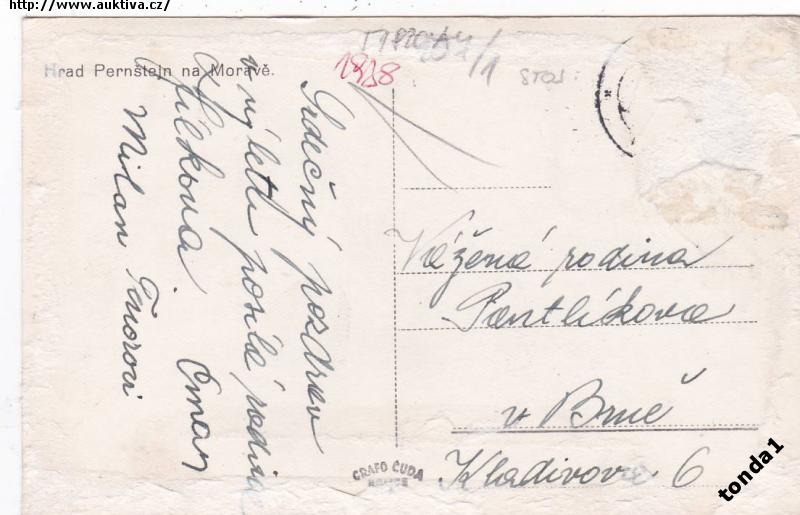 http://www.auktiva.cz/
Hrad Pernštejn na Moravě.
1938.
/1
STOJ.
Srdečný pozdrav
z výletu posílá rodina
Filkova.
Milan
Vážená rodina
Pantlíkova
v Brně
Kladivova 6
GRAFO ČUDA
HOLICE
tonda1